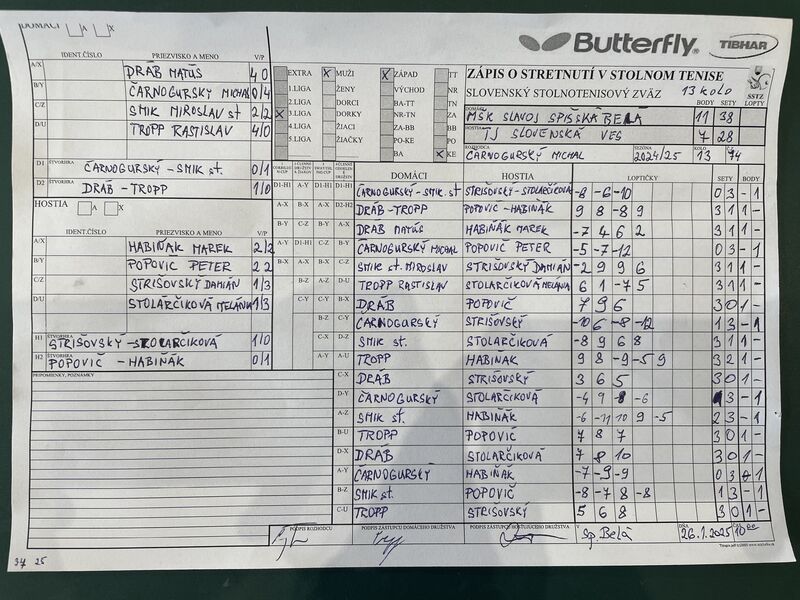 DOMÁCI A X
IDENT.ČÍSLO PRIEZVISKO A MENO V/P
A/X DRÁB MATÚŠ 4 0
B/Y ČARNOGURSKÝ MICHAL 0/4
C/Z SMIK MIROSLAV st 2/2
D/U TROPP RASTISLAV 4/0
D1 ŠTVORHRA ČARNOGURSKÝ - SMIK st. 0/1
D2 ŠTVORHRA DRÁB - TROPP 1/0
HOSTIA A X
IDENT.ČÍSLO PRIEZVISKO A MENO V/P
A/X HABIŇÁK MAREK 2/2
B/Y POPOVIČ PETER 2 2
C/Z STRIŠOVSKÝ DAMIÁN 1/3
D/U STOLARČIKOVÁ MELÁNIA 1/3
H1 ŠTVORHRA STRIŠOVSKÝ - STOLARČIKOVÁ 1/0
H2 ŠTVORHRA POPOVIČ - HABIŇÁK 0/1
PRIPOMIENKY, POZNÁMKY
Butterfly TIBHAR
EXTRA X MUŽI X ZÁPAD TT
1.LIGA ŽENY VÝCHOD NR
2.LIGA DORCI BA-TT TN
X 3.LIGA DORKY NR-TN ZA
4.LIGA ŽIACI ZA-BB BB
5.LIGA ŽIAČKY PO-KE PO
BA X KE
ZÁPIS O STRETNUTÍ V STOLNOM TENISE
SLOVENSKÝ STOLNOTENISOVÝ ZVÄZ 13 KOLO
SSTZ
BODY SETY LOPTY
DOMÁCI MŠK SLAVOJ SPIŠSKÁ BELÁ 11 38
HOSTIA TJ SLOVENSKÁ VES 7 28
ROZHODCA ČARNOGURSKÝ MICHAL SEZÓNA 2024/25 KOLO 13
DOMÁCI HOSTIA LOPTIČKY SETY BODY
D1-H1 ČARNOGURSKÝ - SMIK. st STRIŠOVSKÝ - STOLARČIKOVÁ -8 -6 -10 0 3 - 1
D2-H2 DRÁB - TROPP POPOVIČ - HABIŇÁK 9 8 -8 9 3 1 1 -
A-X DRÁB MATÚŠ HABIŇÁK MAREK -7 4 6 2 3 1 1 -
B-Y ČARNOGURSKÝ MICHAL POPOVIČ PETER -5 -7 -12 0 3 - 1
C-Z SMIK st. MIROSLAV STRIŠOVSKÝ DAMIÁN -2 9 9 6 3 1 1 -
D-U TROPP RASTISLAV STOLARČIKOVÁ MELÁNIA 6 1 -7 5 3 1 1 -
B-X DRÁB POPOVIČ 7 9 6 3 0 1 -
C-Y ČARNOGURSKÝ STRIŠOVSKÝ -10 6 -8 -12 1 3 - 1
D-Z SMIK st. STOLARČIKOVÁ -8 9 6 8 3 1 1 -
A-U TROPP HABINAK 9 8 -9 -5 9 3 2 1 -
C-X DRÁB STRIŠOVSKÝ 3 6 5 3 0 1 -
D-Y ČARNOGURSKÝ STOLARČIKOVÁ -4 9 -8 -6 3 - 1
A-Z SMIK st. HABIŇÁK -6 -11 10 9 -5 2 3 - 1
B-U TROPP POPOVIČ 7 8 7 3 0 1 -
D-X DRÁB STOLARČIKOVÁ 7 8 10 3 0 1 -
A-Y ČARNOGURSKÝ HABIŇÁK -7 -9 -9 0 3 1
B-Z SMIK st. POPOVIČ -8 -7 8 -8 1 3 - 1
C-U TROPP STRIŠOVSKÝ 5 6 8 3 0 1 -
PODPIS ROZHODCU PODPIS ZÁSTUPCU DOMÁCEHO DRUŽSTVA PODPIS ZÁSTUPCU HOSŤUJÚCEHO DRUŽSTVA V Sp. Belá DŇA 26.1.2025 10 00